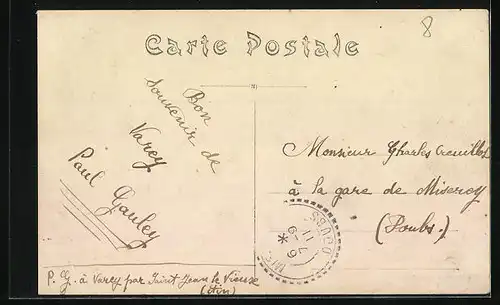 8
Carte Postale
Bon
souvenir de
Varey
Paul Gauley
Monsieur Charles
à la gare de Miserey
(Doubs.)
DOUBS
11
7-9
*
P. G. à Varey par Saint Jean le Vieux
(Ain)